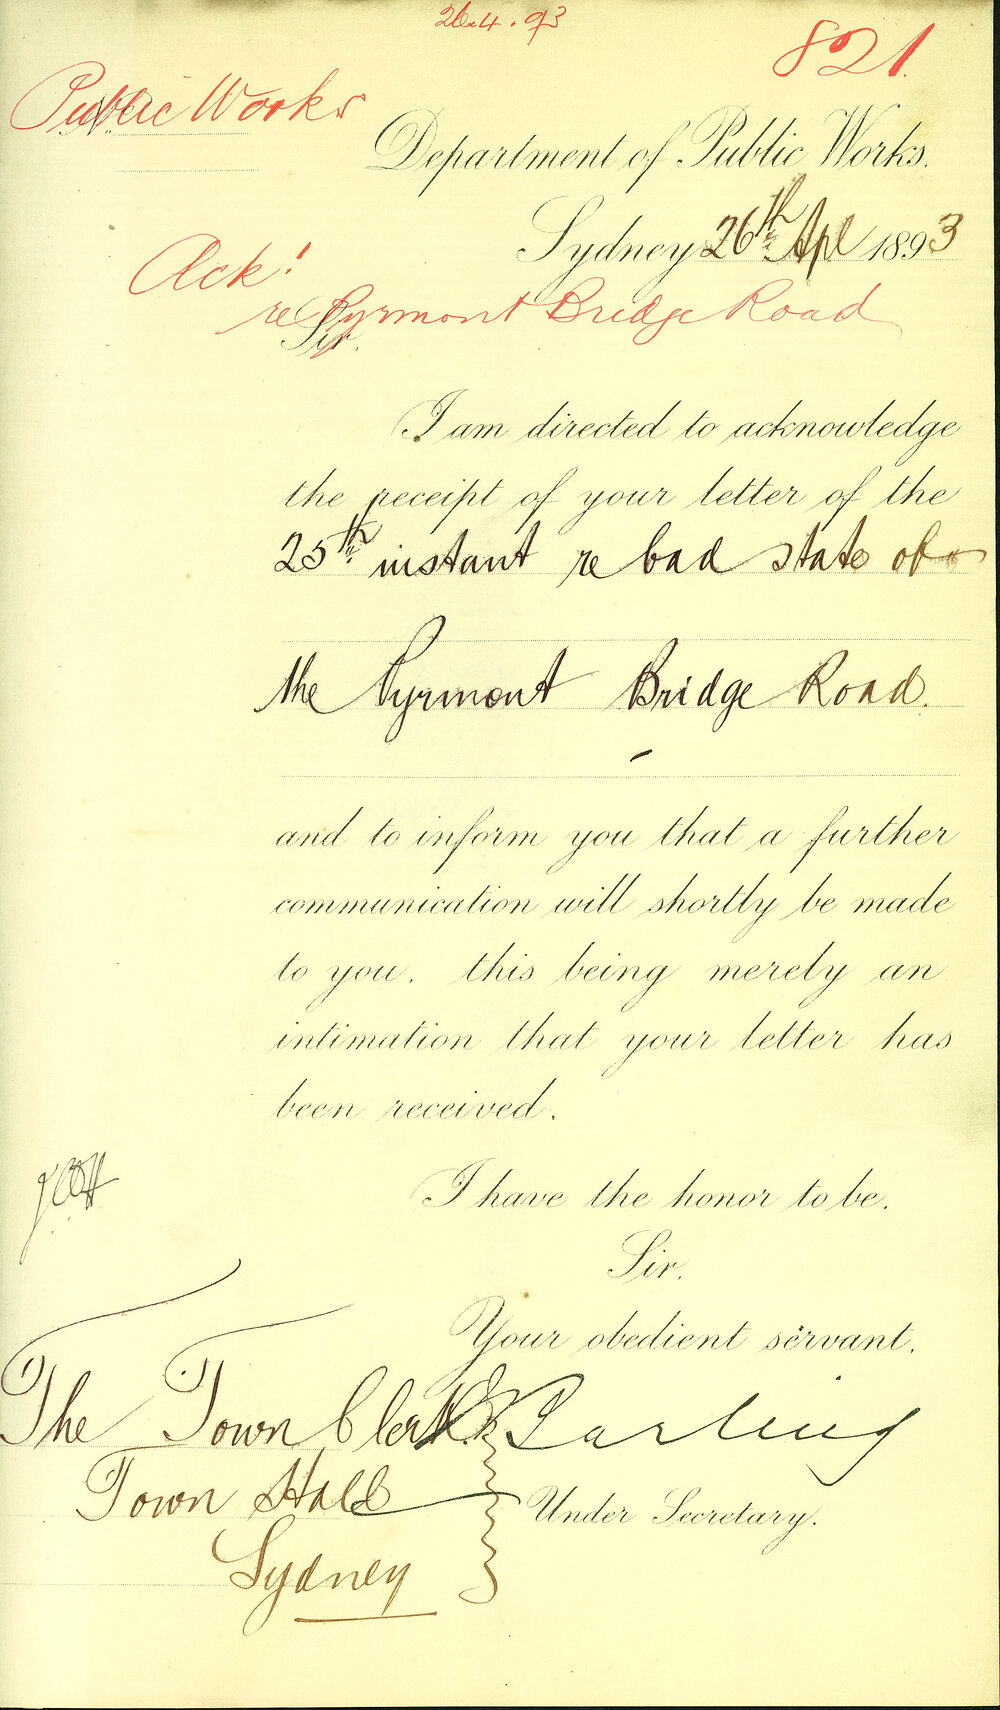 26.4.93
821.
Public Works
Department of Public Works.
Sydney 26th Apl 1893
Ack!
re Pyrmont Bridge Road
Sir.
I am directed to acknowledge
the receipt of your letter of the
25th instant re bad state of
the Pyrmont Bridge Road.
and to inform you that a further
communication will shortly be made
to you. this being merely an
intimation that your letter has
been received.
I have the honor to be.
Sir.
Your obedient servant.
The Town Clerk
Town Hall
Sydney
Under Secretary.